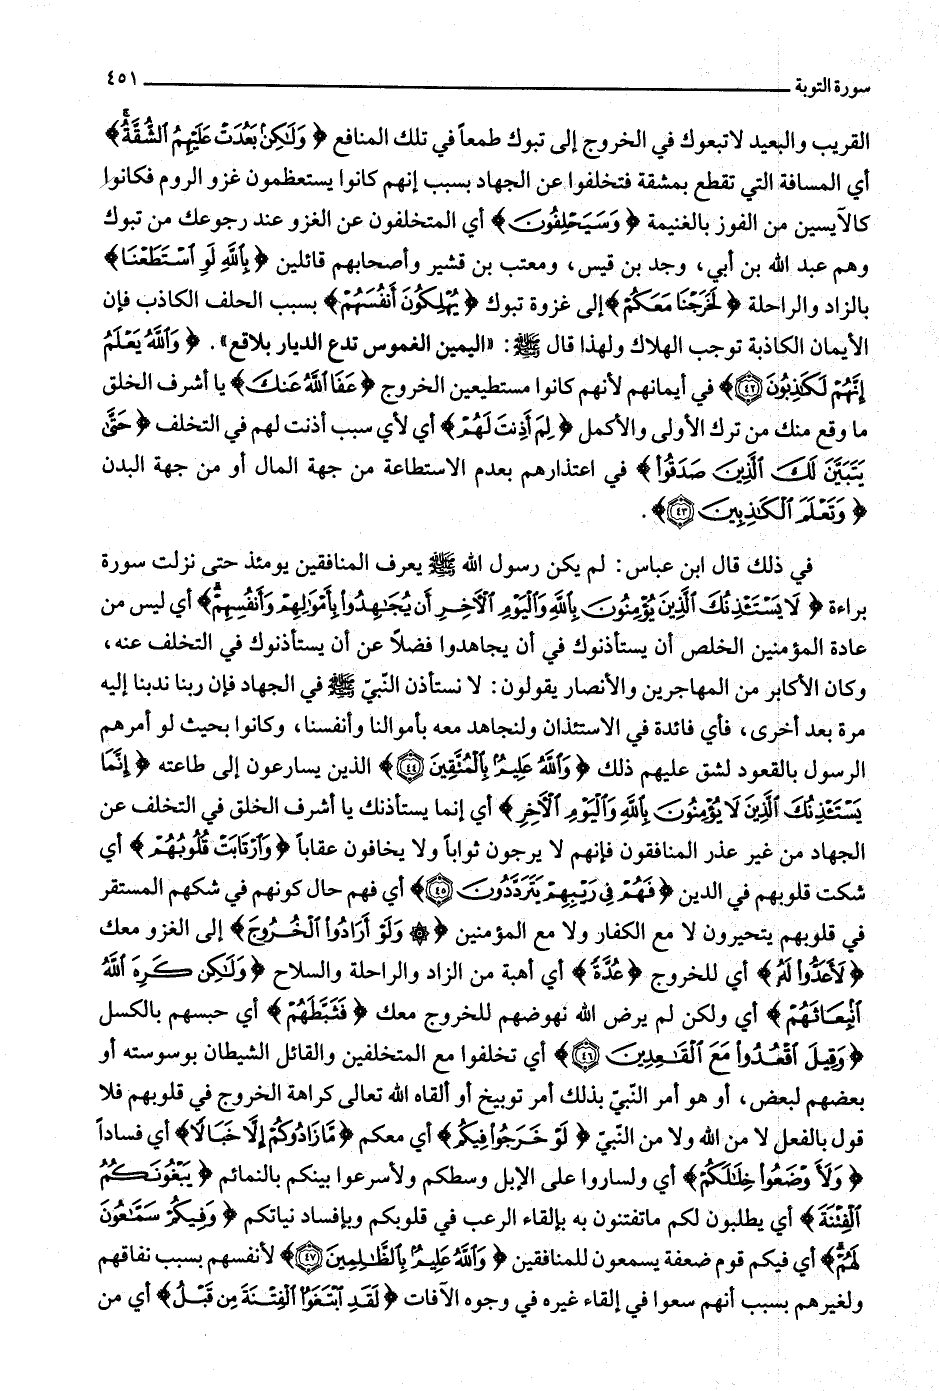 سورة التوبة ٤٥١
القريب والبعيد لاتبعوك في الخروج إلى تبوك طمعاً في تلك المنافع ﴿ وَلَٰكِنۢ بَعُدَتْ عَلَيْهِمُ ٱلشُّقَّةُ ﴾
أي المسافة التي تقطع بمشقة فتخلفوا عن الجهاد بسبب إنهم كانوا يستعظمون غزو الروم فكانوا
كالآيسين من الفوز بالغنيمة ﴿ وَسَيَحْلِفُونَ ﴾ أي المتخلفون عن الغزو عند رجوعك من تبوك
وهم عبد الله بن أبي، وجد بن قيس، ومعتب بن قشير وأصحابهم قائلين ﴿ بِٱللَّهِ لَوِ ٱسْتَطَعْنَا ﴾
بالزاد والراحلة ﴿ لَخَرَجْنَا مَعَكُمْ ﴾ إلى غزوة تبوك ﴿ يُهْلِكُونَ أَنفُسَهُمْ ﴾ بسبب الحلف الكاذب فإن
الأيمان الكاذبة توجب الهلاك ولهذا قال ﷺ: «اليمين الغموس تدع الديار بلاقع». ﴿ وَٱللَّهُ يَعْلَمُ
إِنَّهُمْ لَكَٰذِبُونَ ٤٢ ﴾ في أيمانهم لأنهم كانوا مستطيعين الخروج ﴿ عَفَا ٱللَّهُ عَنكَ ﴾ يا أشرف الخلق
ما وقع منك من ترك الأولى والأكمل ﴿ لِمَ أَذِنتَ لَهُمْ ﴾ أي لأي سبب أذنت لهم في التخلف ﴿ حَتَّىٰ
يَتَبَيَّنَ لَكَ ٱلَّذِينَ صَدَقُوا۟ ﴾ في اعتذارهم بعدم الاستطاعة من جهة المال أو من جهة البدن
﴿ وَتَعْلَمَ ٱلْكَٰذِبِينَ ٤٣ ﴾.
في ذلك قال ابن عباس: لم يكن رسول الله ﷺ يعرف المنافقين يومئذ حتى نزلت سورة
براءة ﴿ لَا يَسْتَـْٔذِنُكَ ٱلَّذِينَ يُؤْمِنُونَ بِٱللَّهِ وَٱلْيَوْمِ ٱلْءَاخِرِ أَن يُجَٰهِدُوا۟ بِأَمْوَٰلِهِمْ وَأَنفُسِهِمْ ﴾ أي ليس من
عادة المؤمنين الخلص أن يستأذنوك في أن يجاهدوا فضلاً عن أن يستأذنوك في التخلف عنه،
وكان الأكابر من المهاجرين والأنصار يقولون: لا نستأذن النبيّ ﷺ في الجهاد فإن ربنا ندبنا إليه
مرة بعد أخرى، فأي فائدة في الاستئذان ولنجاهد معه بأموالنا وأنفسنا، وكانوا بحيث لو أمرهم
الرسول بالقعود لشق عليهم ذلك ﴿ وَٱللَّهُ عَلِيمٌۢ بِٱلْمُتَّقِينَ ٤٤ ﴾ الذين يسارعون إلى طاعته ﴿ إِنَّمَا
يَسْتَـْٔذِنُكَ ٱلَّذِينَ لَا يُؤْمِنُونَ بِٱللَّهِ وَٱلْيَوْمِ ٱلْءَاخِرِ ﴾ أي إنما يستأذنك يا أشرف الخلق في التخلف عن
الجهاد من غير عذر المنافقون فإنهم لا يرجون ثواباً ولا يخافون عقاباً ﴿ وَٱرْتَابَتْ قُلُوبُهُمْ ﴾ أي
شكت قلوبهم في الدين ﴿ فَهُمْ فِى رَيْبِهِمْ يَتَرَدَّدُونَ ٤٥ ﴾ أي فهم حال كونهم في شكهم المستقر
في قلوبهم يتحيرون لا مع الكفار ولا مع المؤمنين ﴿ ۞ وَلَوْ أَرَادُوا۟ ٱلْخُرُوجَ ﴾ إلى الغزو معك
﴿ لَأَعَدُّوا۟ لَهُۥ ﴾ أي للخروج ﴿ عُدَّةً ﴾ أي أهبة من الزاد والراحلة والسلاح ﴿ وَلَٰكِن كَرِهَ ٱللَّهُ
ٱنۢبِعَاثَهُمْ ﴾ أي ولكن لم يرض الله نهوضهم للخروج معك ﴿ فَثَبَّطَهُمْ ﴾ أي حبسهم بالكسل
﴿ وَقِيلَ ٱقْعُدُوا۟ مَعَ ٱلْقَٰعِدِينَ ٤٦ ﴾ أي تخلفوا مع المتخلفين والقائل الشيطان بوسوسته أو
بعضهم لبعض، أو هو أمر النبيّ بذلك أمر توبيخ أو ألقاه الله تعالى كراهة الخروج في قلوبهم فلا
قول بالفعل لا من الله ولا من النبيّ ﴿ لَوْ خَرَجُوا۟ فِيكُم ﴾ أي معكم ﴿ مَّا زَادُوكُمْ إِلَّا خَبَالًا ﴾ أي فساداً
﴿ وَلَأَوْضَعُوا۟ خِلَٰلَكُمْ ﴾ أي ولساروا على الإبل وسطكم ولأسرعوا بينكم بالنمائم ﴿ يَبْغُونَكُمُ
ٱلْفِتْنَةَ ﴾ أي يطلبون لكم ماتفتنون به بإلقاء الرعب في قلوبكم وبإفساد نياتكم ﴿ وَفِيكُمْ سَمَّٰعُونَ
لَهُمْ ﴾ أي فيكم قوم ضعفة يسمعون للمنافقين ﴿ وَٱللَّهُ عَلِيمٌۢ بِٱلظَّٰلِمِينَ ٤٧ ﴾ لأنفسهم بسبب نفاقهم
ولغيرهم بسبب أنهم سعوا في إلقاء غيره في وجوه الآفات ﴿ لَقَدِ ٱبْتَغَوُا۟ ٱلْفِتْنَةَ مِن قَبْلُ ﴾ أي من